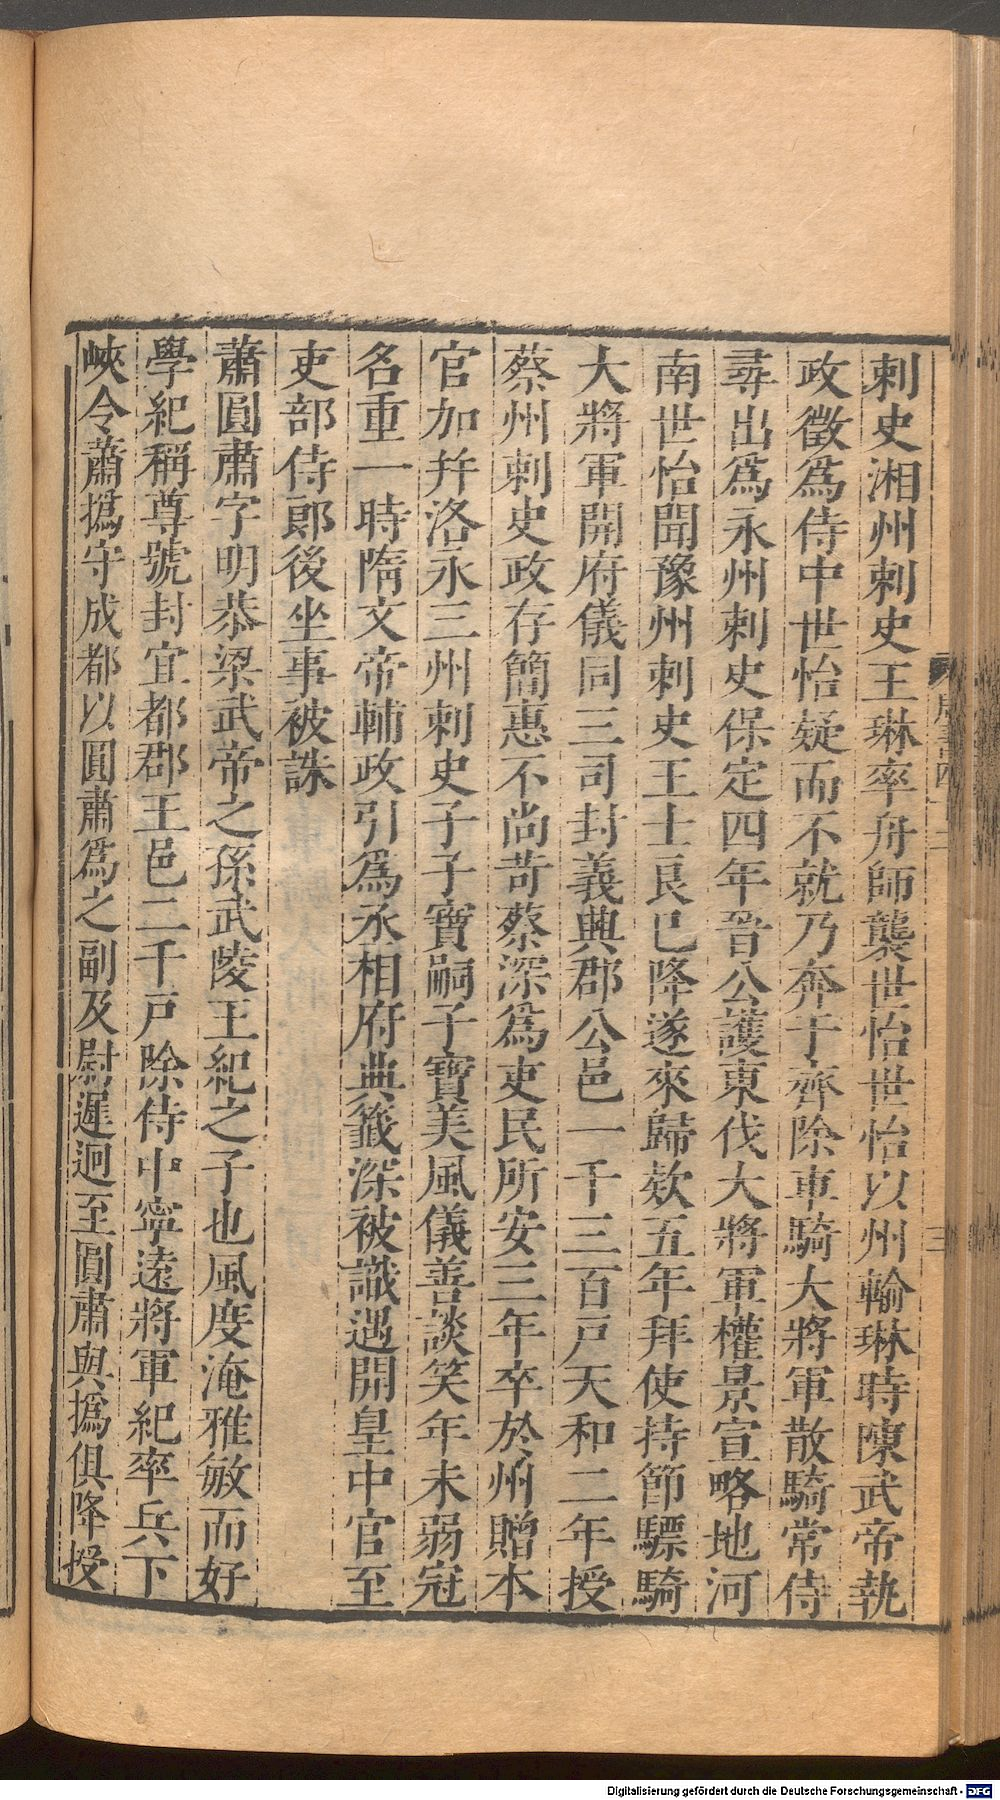 刺史湘州刺史王琳率舟師襲世怡世怡以州輸琳時陳武帝執
政徵爲侍中世怡疑而不就乃奔于齊除車騎大將軍散騎常侍
尋出爲永州刺史保定四年晉公護東伐大將軍權景宣略地河
南世怡聞豫州刺史王士良已降遂來歸欵五年拜使持節驃騎
大將軍開府儀同三司封義興郡公邑一千三百戸天和二年授
蔡州刺史政存簡惠不尚苛蔡深爲吏民所安三年卒於州贈本
官加幷洛永三州刺史子子寶嗣子寶美風儀善談笑年未弱冠
名重一時隋文帝輔政引爲丞相府典籖深被識遇開皇中官至
吏部侍郎後坐事被誅
蕭圓肅字明恭梁武帝之孫武陵王紀之子也風度淹雅敏而好
學紀稱尊號封宜都郡王邑二千戸除侍中寧遠將軍紀率兵下
峽令蕭撝守成都以圓肅爲之副及尉遲迥至圓肅與撝俱降授
Digitalisierung gefördert durch die Deutsche Forschungsgemeinschaft - DFG